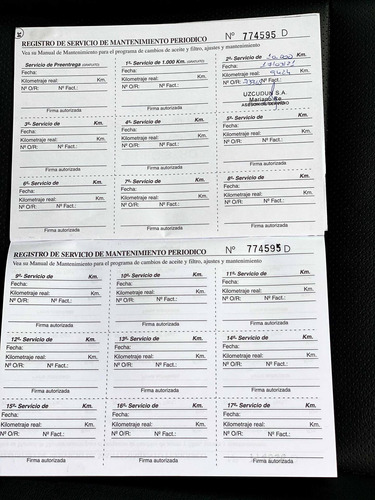 REGISTRO DE SERVICIO DE MANTENIMIENTO PERIODICO Nº 774595 D
Vea su Manual de Mantenimiento para el programa de cambios de aceite y filtro, ajustes y mantenimiento
Servicio de Preentrega (GRATUITO) 1º- Servicio de 1.000 Km. (GRATUITO) 2º- Servicio de 10.000 Km.
Fecha: Fecha: Fecha:
Kilometraje real: Km. Kilometraje real: Km. Kilometraje real: 9424 Km.
Nº O/R: Nº Fact.: Nº O/R: Nº Fact.: Nº O/R: Nº Fact.:
UZCUDUN S.A.
Firma autorizada Firma autorizada
3º- Servicio de Km. 4º- Servicio de Km. 5º- Servicio de Km.
Fecha: Fecha: Fecha:
Kilometraje real: Km. Kilometraje real: Km. Kilometraje real: Km.
Nº O/R: Nº Fact.: Nº O/R: Nº Fact.: Nº O/R: Nº Fact.:
Firma autorizada Firma autorizada Firma autorizada
6º- Servicio de Km. 7º- Servicio de Km. 8º- Servicio de Km.
Fecha: Fecha: Fecha:
Kilometraje real: Km. Kilometraje real: Km. Kilometraje real: Km.
Nº O/R: Nº Fact.: Nº O/R: Nº Fact.: Nº O/R: Nº Fact.:
Firma autorizada Firma autorizada Firma autorizada
REGISTRO DE SERVICIO DE MANTENIMIENTO PERIODICO Nº 774595 D
Vea su Manual de Mantenimiento para el programa de cambios de aceite y filtro, ajustes y mantenimiento
9º- Servicio de Km. 10º- Servicio de Km. 11º- Servicio de Km.
Fecha: Fecha: Fecha:
Kilometraje real: Km. Kilometraje real: Km. Kilometraje real: Km.
Nº O/R: Nº Fact.: Nº O/R: Nº Fact.: Nº O/R: Nº Fact.:
Firma autorizada Firma autorizada Firma autorizada
12º- Servicio de Km. 13º- Servicio de Km. 14º- Servicio de Km.
Fecha: Fecha: Fecha:
Kilometraje real: Km. Kilometraje real: Km. Kilometraje real: Km.
Nº O/R: Nº Fact.: Nº O/R: Nº Fact.: Nº O/R: Nº Fact.:
Firma autorizada Firma autorizada Firma autorizada
15º- Servicio de Km. 16º- Servicio de Km. 17º- Servicio de Km.
Fecha: Fecha: Fecha:
Kilometraje real: Km. Kilometraje real: Km. Kilometraje real: Km.
Nº O/R: Nº Fact.: Nº O/R: Nº Fact.: Nº O/R: Nº Fact.:
Firma autorizada Firma autorizada Firma autorizada